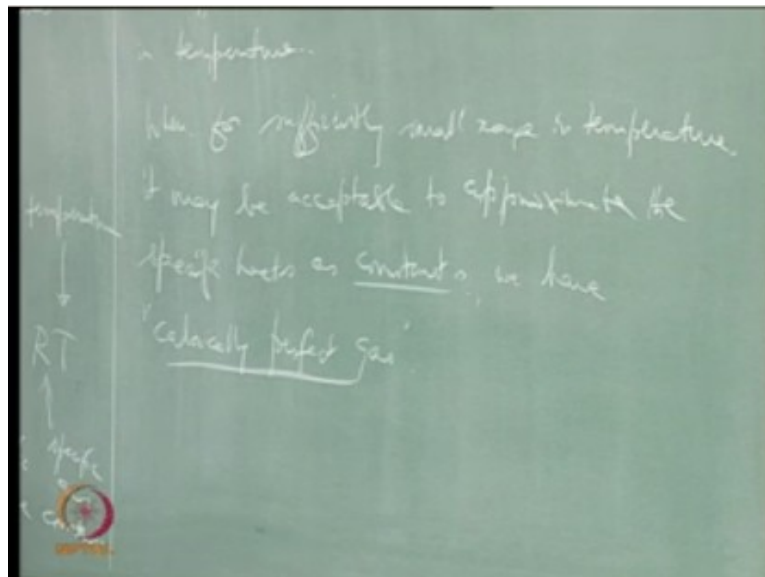 in temperature..
When for sufficiently small range in temperature
it may be acceptable to approximate the
specific heats as constants, we have
"calorically perfect gas"
temperature
RT
specific
gas